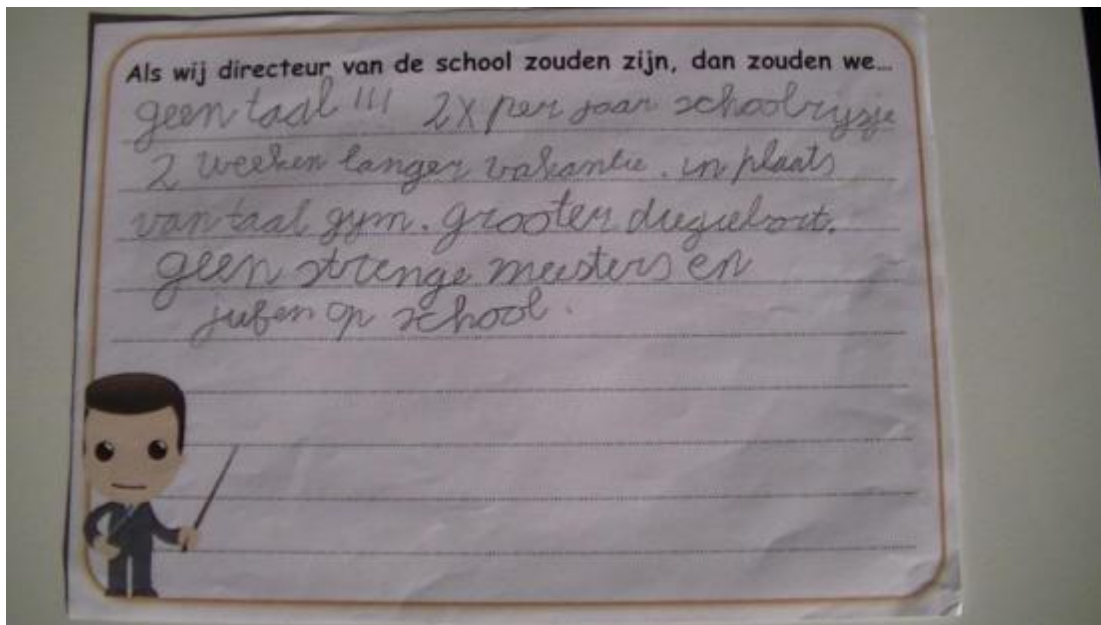 Als wij directeur van de school zouden zijn, dan zouden we...
geen taal !!! 2x per jaar schoolrysje
2 weeken langer vakantie. in plaats
van taal gym. grooter
geen strenge meesters en
jufen op school.